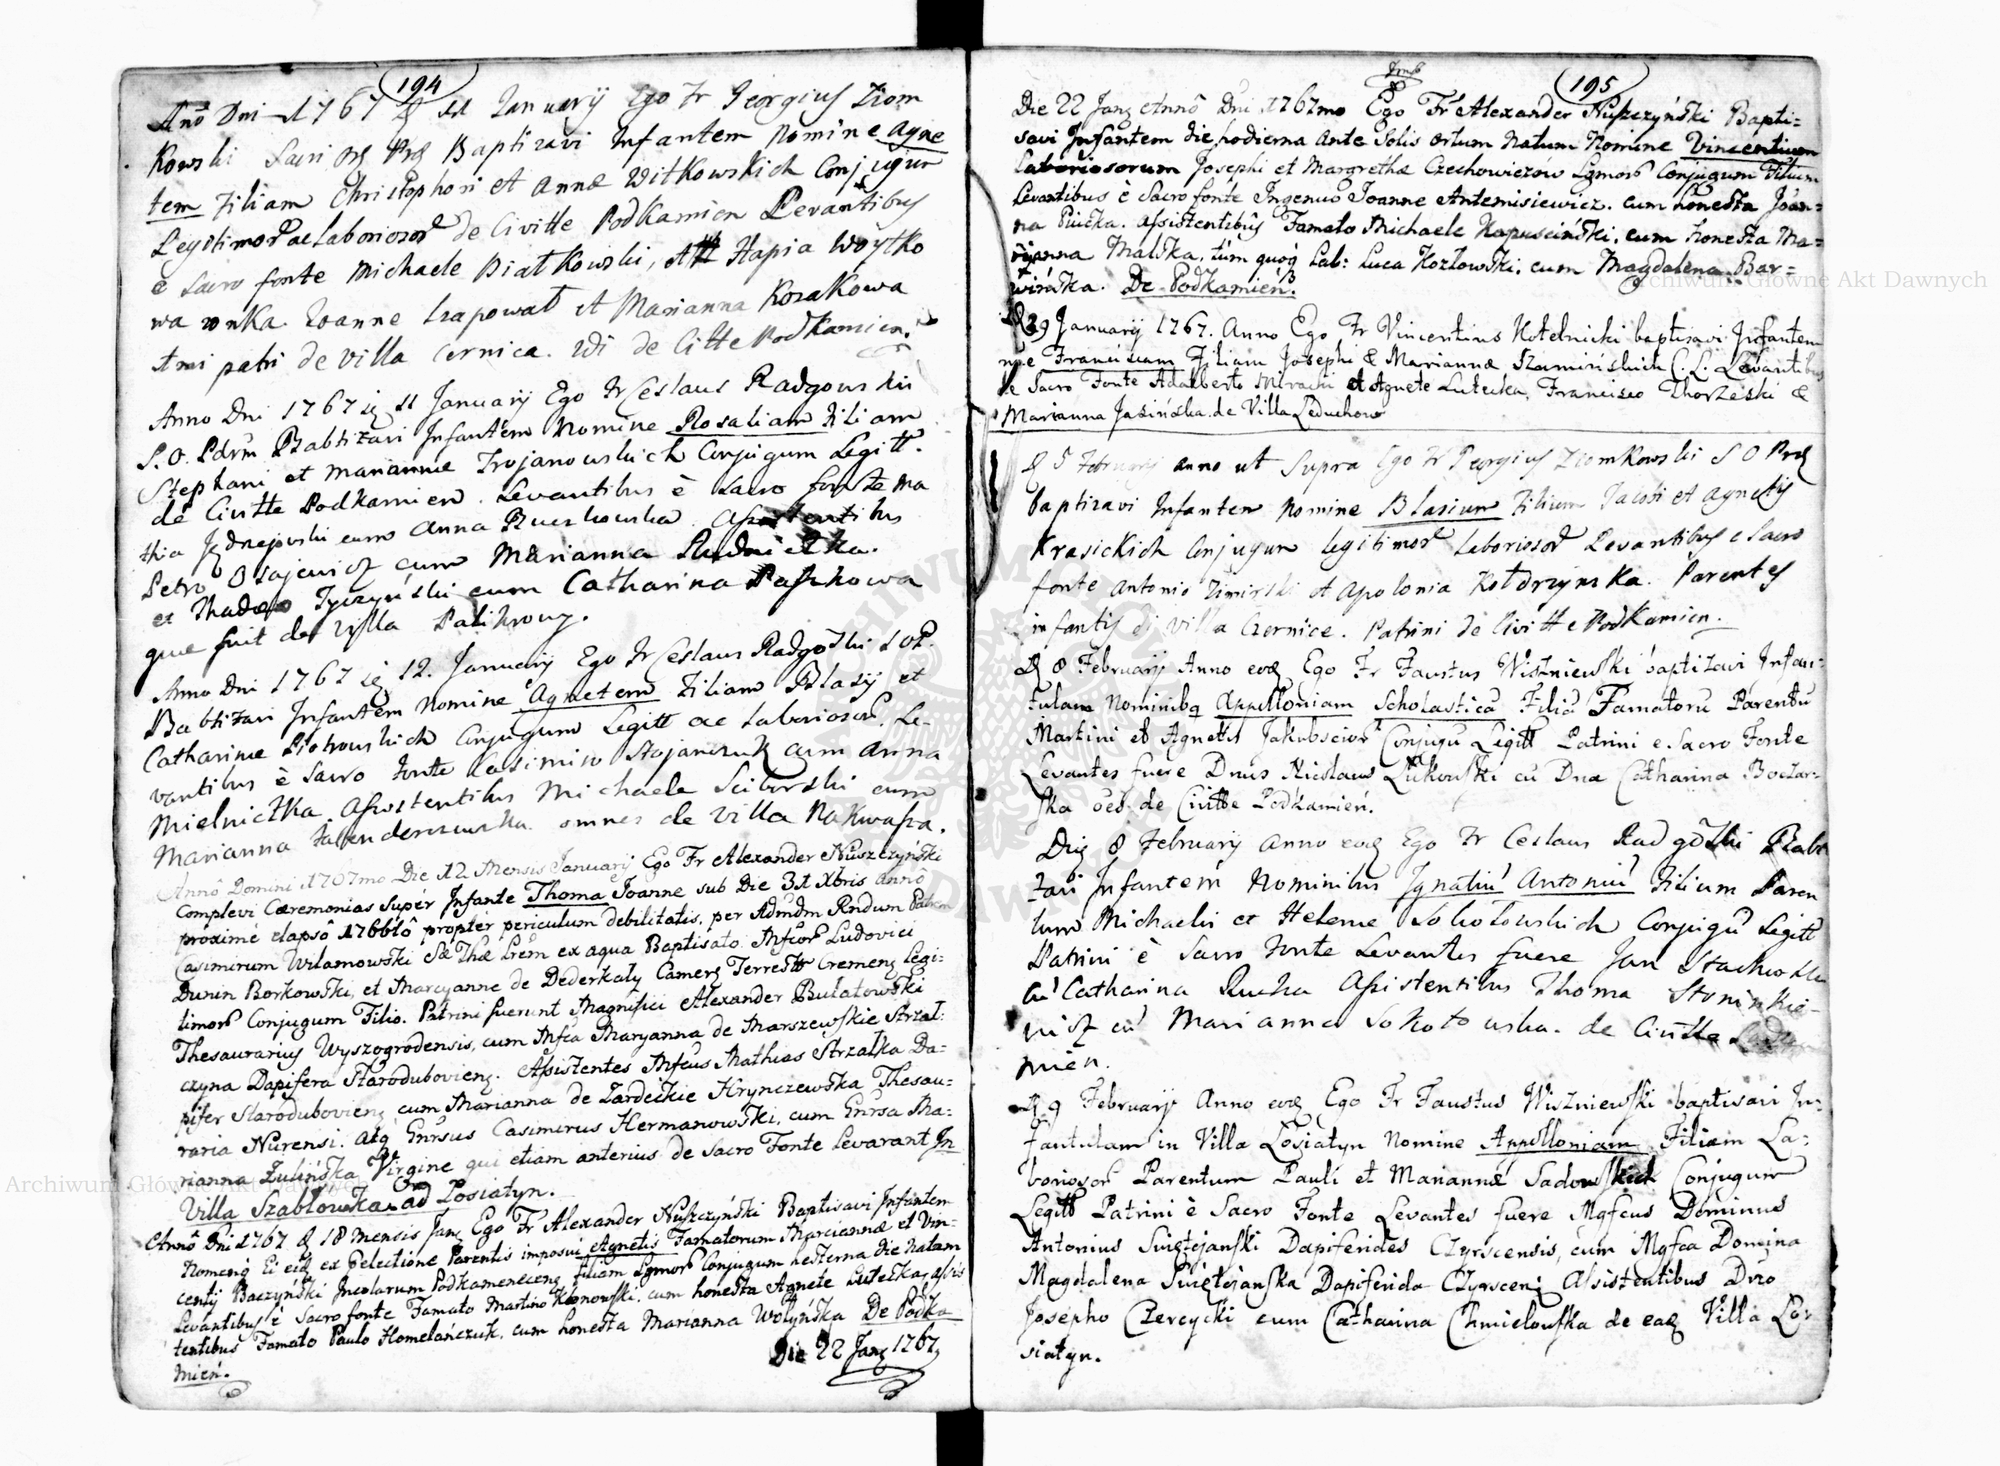 194
Anô Dni 1767 d 11 Januarij Ego Fr Georgius Ziom
Kowski Sacri Ord Præd Baptizavi Infantem Nomine Agne
tem Filiam Christophori et Annæ Witkowskich Conjugum
Legitimor ac Laboriosor de Civitte Podkamien Levantibus
è Sacro fonte Michaele Białkowski, et Hapia Woytko
wa wnka. Joanne Czapował et Marianna Kozakowa
Anni patri de villa Cernica. Udi de Citte Podkamien.
Anno Dni 1767 die 11 January Ego Fr Ceslaus Radgowski
S. O. Pdrm Babtizavi Infantem Nomine Rosaliam Filiam
Stephani et Mariannæ Trojanowskich Conjugum Legitt.
de Civitte Podkamien. Levantibus è Sacro fonte Ma
thia Jędrzejowski cum Anna Ruszkowska. Assistentibus
Petro Osajewicz cum Marianna Rudnicka.
et Thadæo Tyczyński cum Catharina Paszkowa
quæ fuit de Villa Palikrowy.
Anno Dni 1767 die 12. Januarij Ego Fr Ceslaus Radgoski S O P.
Babtizavi Infantem Nomine Agnetem Filiam Blasij et
Catharinæ Piotrowskich Conjugum Legitt ac Laboriosor. Le-
vantibus è Sacro Fonte Casimiro Stojanczuk cum Anna
Mielniczka. Assistentibus Michaele Sciborski cum
Marianna Falenderczewska omnes de Villa Nakwasza.
Annô Domini 1767mo Die 12 Mensis January Ego Fr Alexander Nuszczyński
Complevi Cæremonias super Infante Thoma Joanne sub Die 31 Xbris annô
proximè elapsô 1766tô propter periculum debilitatis, per Admdm Rndum Patrem
Casimirum Wilamowski Sæ Thæ Prem ex aqua Baptisato Mfcor Ludovici
Dunin Borkowski, et Maryanne de Dederkały Camerz Terrestr Cremenz Legi-
timor Conjugum Filio. Patrini fuerunt Magnifici Alexander Bułatowski
Thesaurarius Wyszogrodensis, cum Mfca Maryanna de Marszewskie Strzał-
czyna Dapifera Starodubovienz. Assistentes Mfcus Mathias Strzałka Da-
pifer Starodubovienz cum Marianna de Zardeckie Hrynczewska Thesau-
raria Nurensi. atq Gnrsus Casimirus Hermanowski, cum Gnrsa Ma-
rianna Żulińska Virgine qui etiam anterius de Sacro Fonte Levarant In
Villa Szabłowska ad Łosiatyn.
Annô Dni 1767 d 18 Mensis Janz Ego Fr Alexander Nuszczyński Baptisavi Infantem
Nomenq Ei eid ex Selectione Parentis imposui Agnetis Famatorum Marciannæ et Vin-
centij Baczyński Incolarum Podkamenecenz. filiam Lgmor Conjugum hesterna die Natam
Levantibus è Sacro fonte Famato Martino Klonowski. cum honesta Agnete Lutecka, assis
tentibus Famato Paulo Homelańczuk, cum honesta Marianna Wołyńska De Podka
mień.
Die 22 Janz 1767
195
Die 22 Janz Annô Dni 1767mo Ego Fr Alexander Nuszczyński Bapti-
savi Infantem die hodierna Ante Solis ortum Natum Nomine Vincentium
Laboriosorum Josephi et Margrethæ Czechowiczów Lgmor Conjugum Filium
Levantibus è Sacro fonte Ingenuo Joanne Antemisiewicz. cum honesta Joan-
na Piucka. Assistentibus Famato Michaele Kapuscinski, cum honesta Ma-
ryanna Malska, tùm quoq Lab: Luca Kozłowski. cum Magdalena Bar-
wińska. De Podkamień.
d 29 Januarij 1767. Anno Ego Fr Vincentius Kotelnicki baptisavi Infantem
nne Franciscam Filiam Josephi & Mariannæ Szaminskich C. L. Levantibus
de Sacro Fonte Adalberto Muracki et Agnete Lutecka, Francisco Thorzeski &
Marianna Jasinska de Villa Leduchow
d 5 Februarij anno ut Supra Ego Fr Georgius Ziomkowski S O Præd
baptizavi Infantem Nomine Blasium Filium Jacobi et Agnetis
Krasickich Conjugum legitimor Laboriosor Levantibus e Sacro
fonte Antonio Zimirski et Apolonia Kołdrzynska. Parentes
infantis di Villa Czernice. Patrini de Civitte Podkamien.
d 8 Februarij Anno eod Ego Fr Faustus Wiszniewski baptizavi Infan-
tulam Nominibq Appolloniam Scholasticã Filiã Famatorũ Parentũ
Martini et Agnetis Jakubsciow Conjugũ Legitt Patrini e. Sacro Fonte
Levantes fuere Dnũs Nicolaus Łukowski cũ Dna Catharina Boczar-
ska oẽs de Civitte Podkamień.
Die 8 Februarij Anno eod Ego Fr Ceslaus Radgoski Babt
tzavi Infantem Nominibus Ignatiũ Antoniũ Filium Paren
tum Michaelis et Helenæ Sokołowskich Conjugũ Legitt
Patrini è Sacro Fonte Levantes fuere Jan Stachowski
cũ Catharina Rucka Assistentibus Thoma Stoninkie-
wicz cũ Marianna Sokołowska. de Civitte Podka
mien.
d 9 Februarij Anno eod Ego Fr Faustus Wiszniewski baptisavi In-
fantulam in Villa Łosiatyn Nomine Appolloniam Filiam La-
boriosor Parentum Pauli et Mariannæ Sadowskich Conjugum
Legitt Patrini è Sacro Fonte Levantes fuere Mgfcus Dominus
Antonius Swiętojanski Dapiferides Czyrscensis, cum Mgfca Domina
Magdalena Swiętojanska Dapiferida Czyrscenz Assistentibus Dno
Josepho Czercycki cum Catharina Chmielowska de ead Villa Ło-
siatyn.
Archiwum Główne Akt Dawnych
Archiwum Główne Akt Dawnych